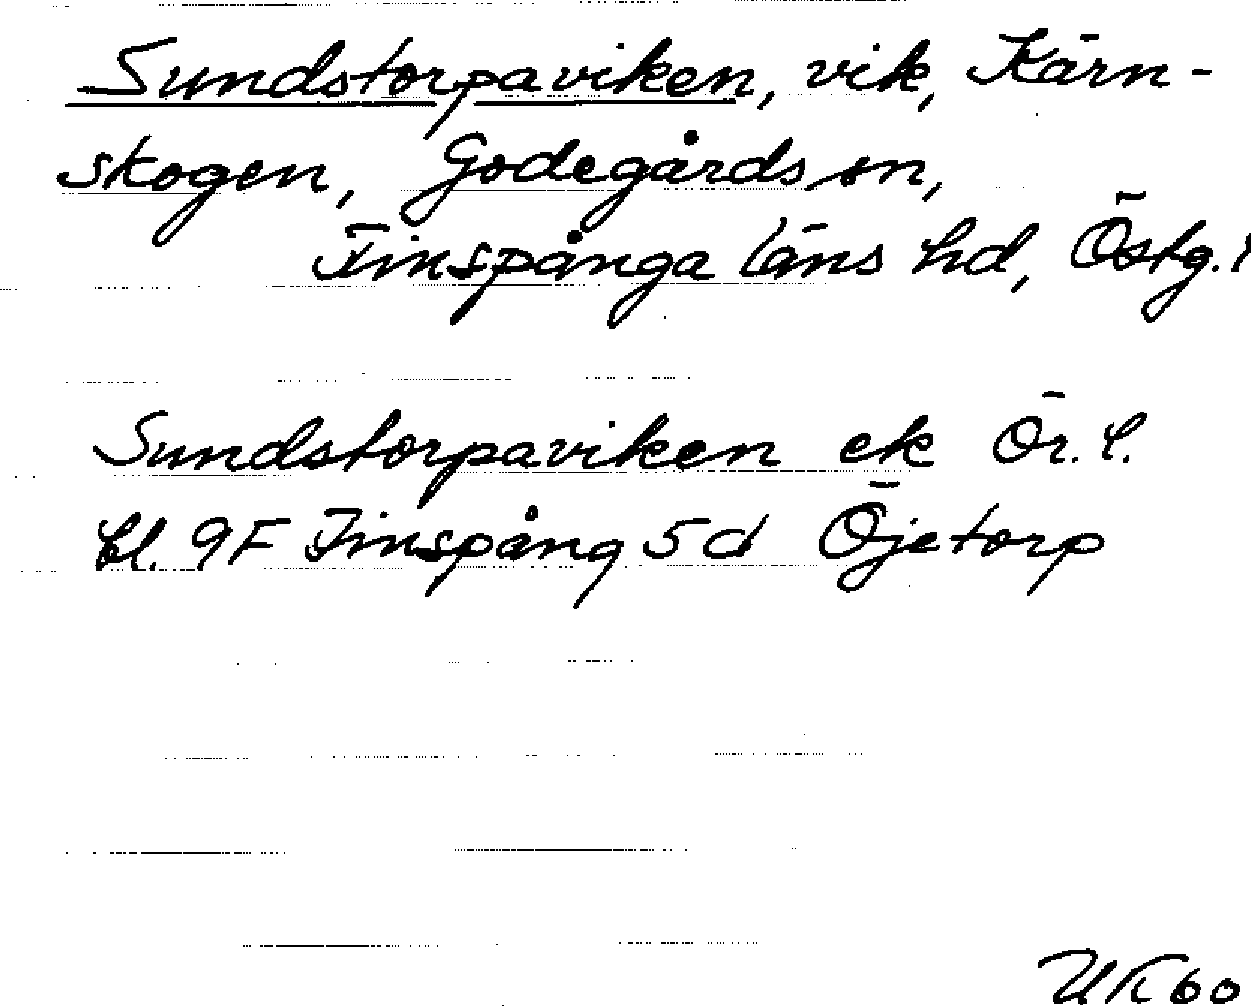 Sundstorpaviken, vik, Kärn-
skogen, Godegårds sn,
Finspånga läns hd, Östg.l
Sundstorpaviken ek Ör.l.
bl. 9F Finspång 5d Öjetorp
UK 60